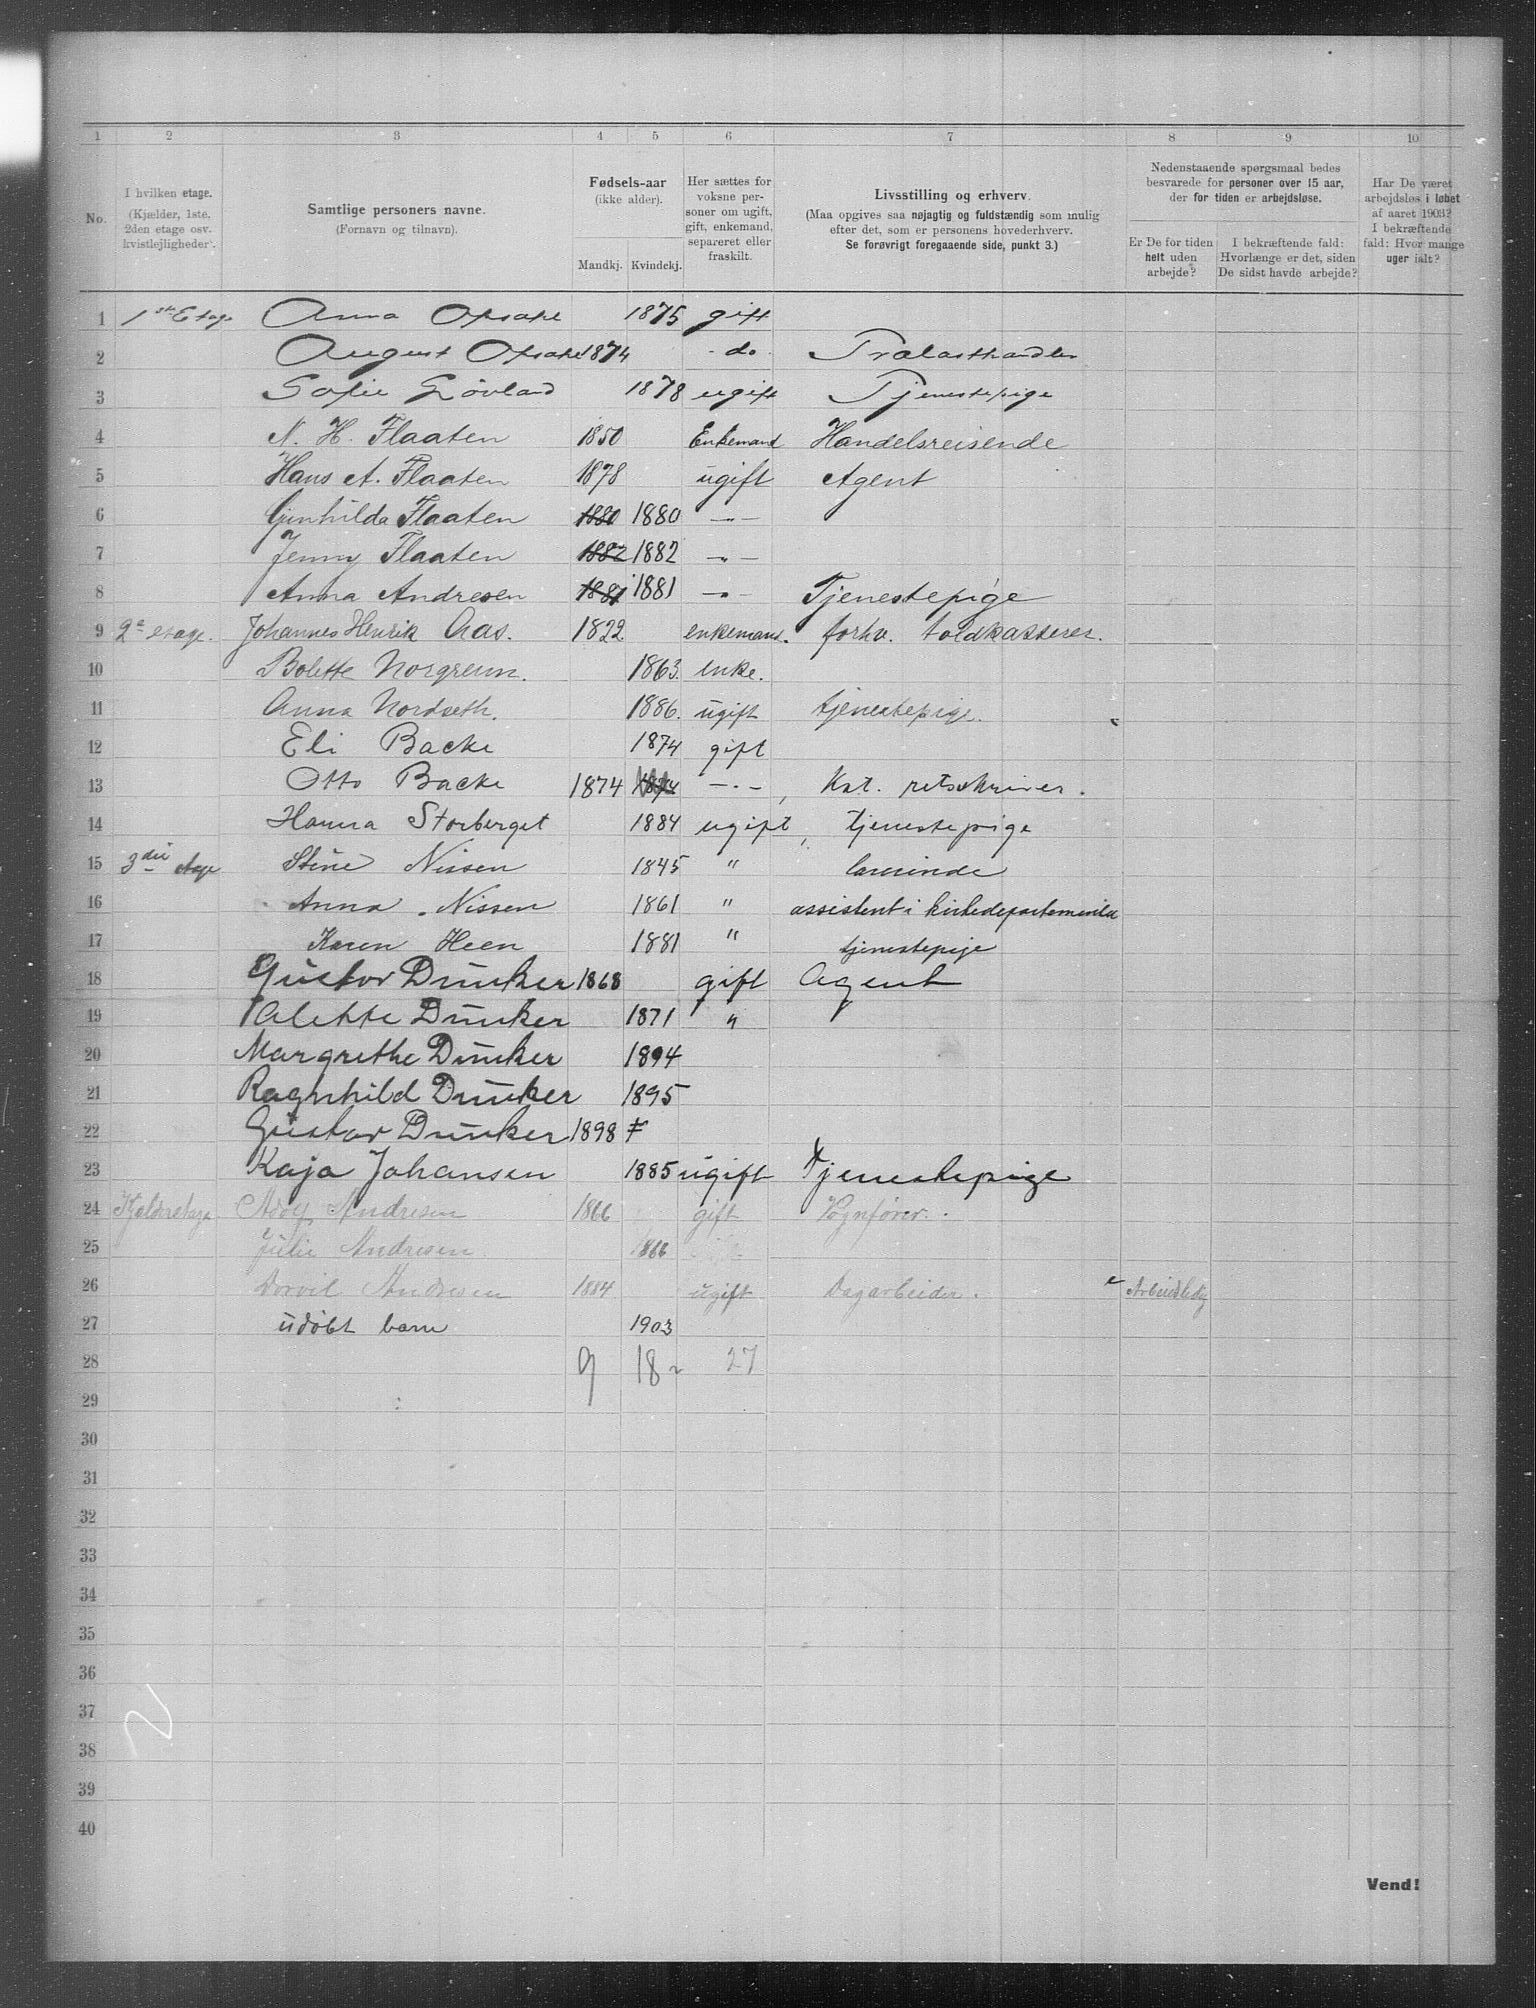 1 2 3 4 5 6 7 8 9 10
No.
I hvilken etage.
(Kjælder, 1ste.
2den etage osv.
kvistlejligheder).
Samtlige personers navne.
(Fornavn og tilnavn).
Fødsels-aar
(ikke alder).
Mandkj. Kvindekj.
Her sættes for
voksne per-
soner om ugift,
gift, enkemand,
separeret eller
fraskilt.
Livsstilling og erhverv.
(Maa opgives saa nøjagtig og fuldstændig som mulig
efter det, som er personens hovederhverv.
Se forøvrigt foregaaende side, punkt 3.)
Nedenstaaende spørgsmaal bedes
besvarede for personer over 15 aar,
der for tiden er arbejdsløse.
Er De for tiden
helt uden
arbejde?
I bekræftende fald:
Hvorlænge er det, siden
De sidst havde arbejde?
Har De været
arbejdsløs i løbet
af aaret 1903?
I bekræftende
fald: Hvor mange
uger ialt?
1 1st Etage Anna Opsahl 1875 gift
2 August Opsahl 1874 do. Trælasthandler
3 Sofie Løvland 1878 ugift Tjenestepige
4 N. H. Flaaten 1850 Enkemand Handelsreisende
5 Hans A. Flaaten 1878 ugift Agent
6 Gunhilda Flaaten 1880 1880 -"-
7 Jenny Flaaten 1882 1882 -"-
8 Anna Andresen 1881 1881 -"- Tjenestepige
9 2e etage. Johannes Henrik Aas. 1822 enkemand. forhv. toldkasserer.
10 Bolette Norgrenn. 1863. enke.
11 Anna Nordseth. 1886. ugift tjenestepige.
12 Eli Backe 1874 gift
13 Otto Backe 1874 1874 -"-, Kst. retsskriver.
14 Hanna Storberget 1884 ugift, tjenestepige
15 3die etage Stine Nissen 1845 " lærerinde
16 Anna Nissen 1861 " assistent i kirkedepartementet
17 Karen Heen 1881 " tjenestepige
18 Gustav Dunker 1868 gift Agent
19 Valette Dunker 1871 "
20 Margrethe Dunker 1894
21 Ragnhild Dunker 1895
22 Gustav Dunker 1898 F
23 Kaja Johansen 1885 ugift Tjenestepige
24 Kjelderetage Adolf Andresen 1866 gift Vognfører.
25 Julie Andresen 1866
26 Andresen 1884 ugift Dagarbeider. Arbeidsledig
27 udøbt barn 1903
28 9 18 27
29
30
31
32
33
34
35
36
37
38
39
40
Vend!